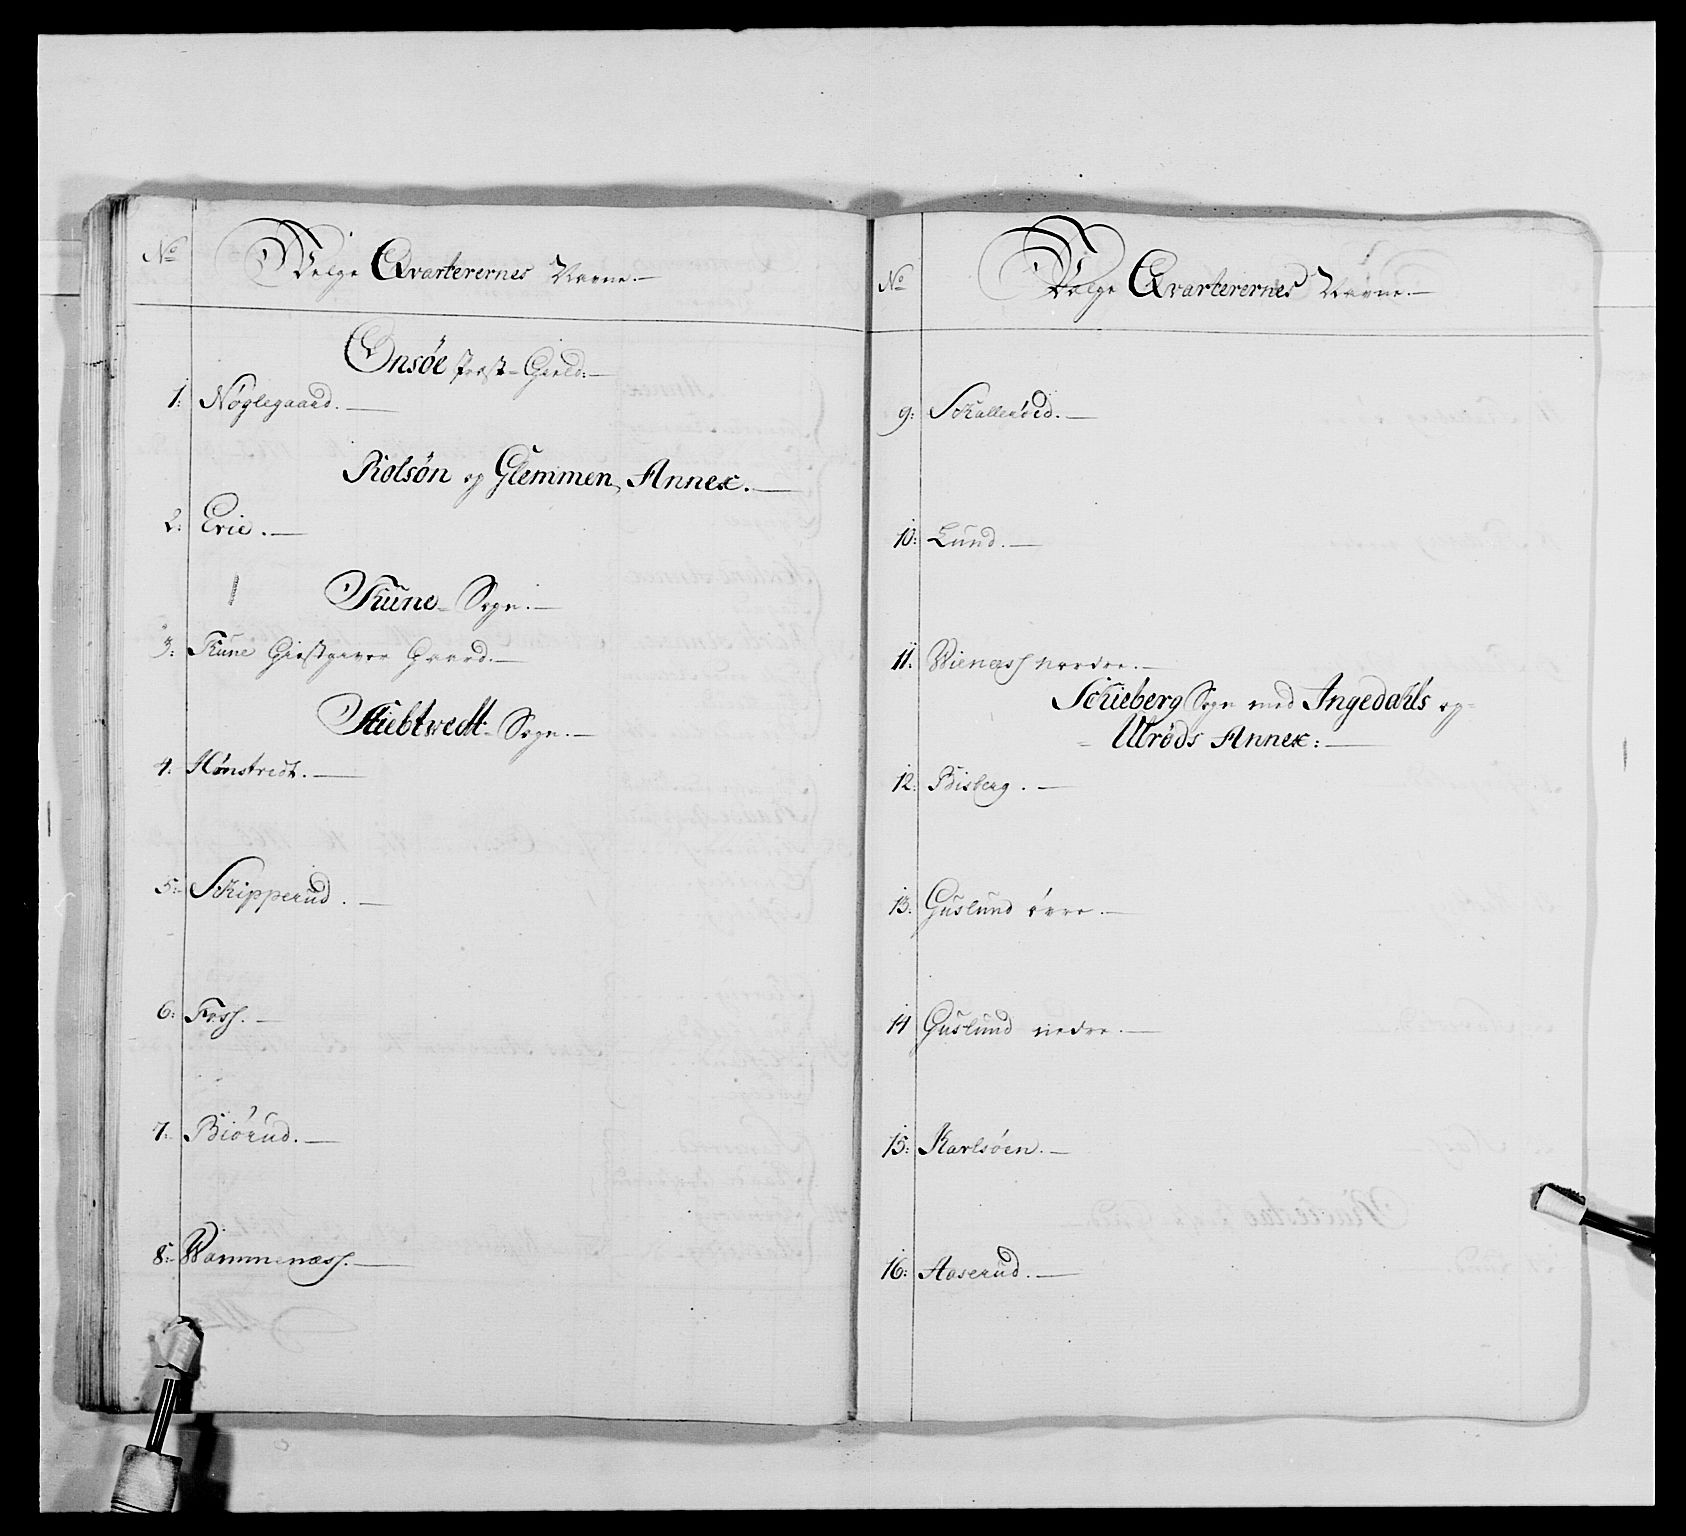 No
Følge Qvarterernes Navne.
Onsøe Præste-Gield:
1: Nøglegaard.
Rolsøn og Glemmen, Annex.
2: Evie.
Tune Sogn.
3: Tune Giestgiver Gaard.
Skiebtvedt Sogn.
4: Hønstvedt.
5: Schipperud.
6: Foss.
7: Biørud.
8: Wammenæss.
No
Følge Qvarterernes Navne.
9: Schallerød.
10: Lund.
11. Wienæss nordre.
Schieberg Sogn med Ingedahls og
Ulrøds Annex:
12: Bisberg.
13. Guslund øvre.
14 Guslund nedre.
15: Karlsøen.
16: Aaserud.